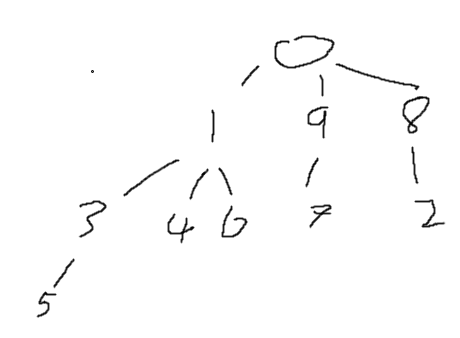 0
1 9 8
3 4 6 7 2
5